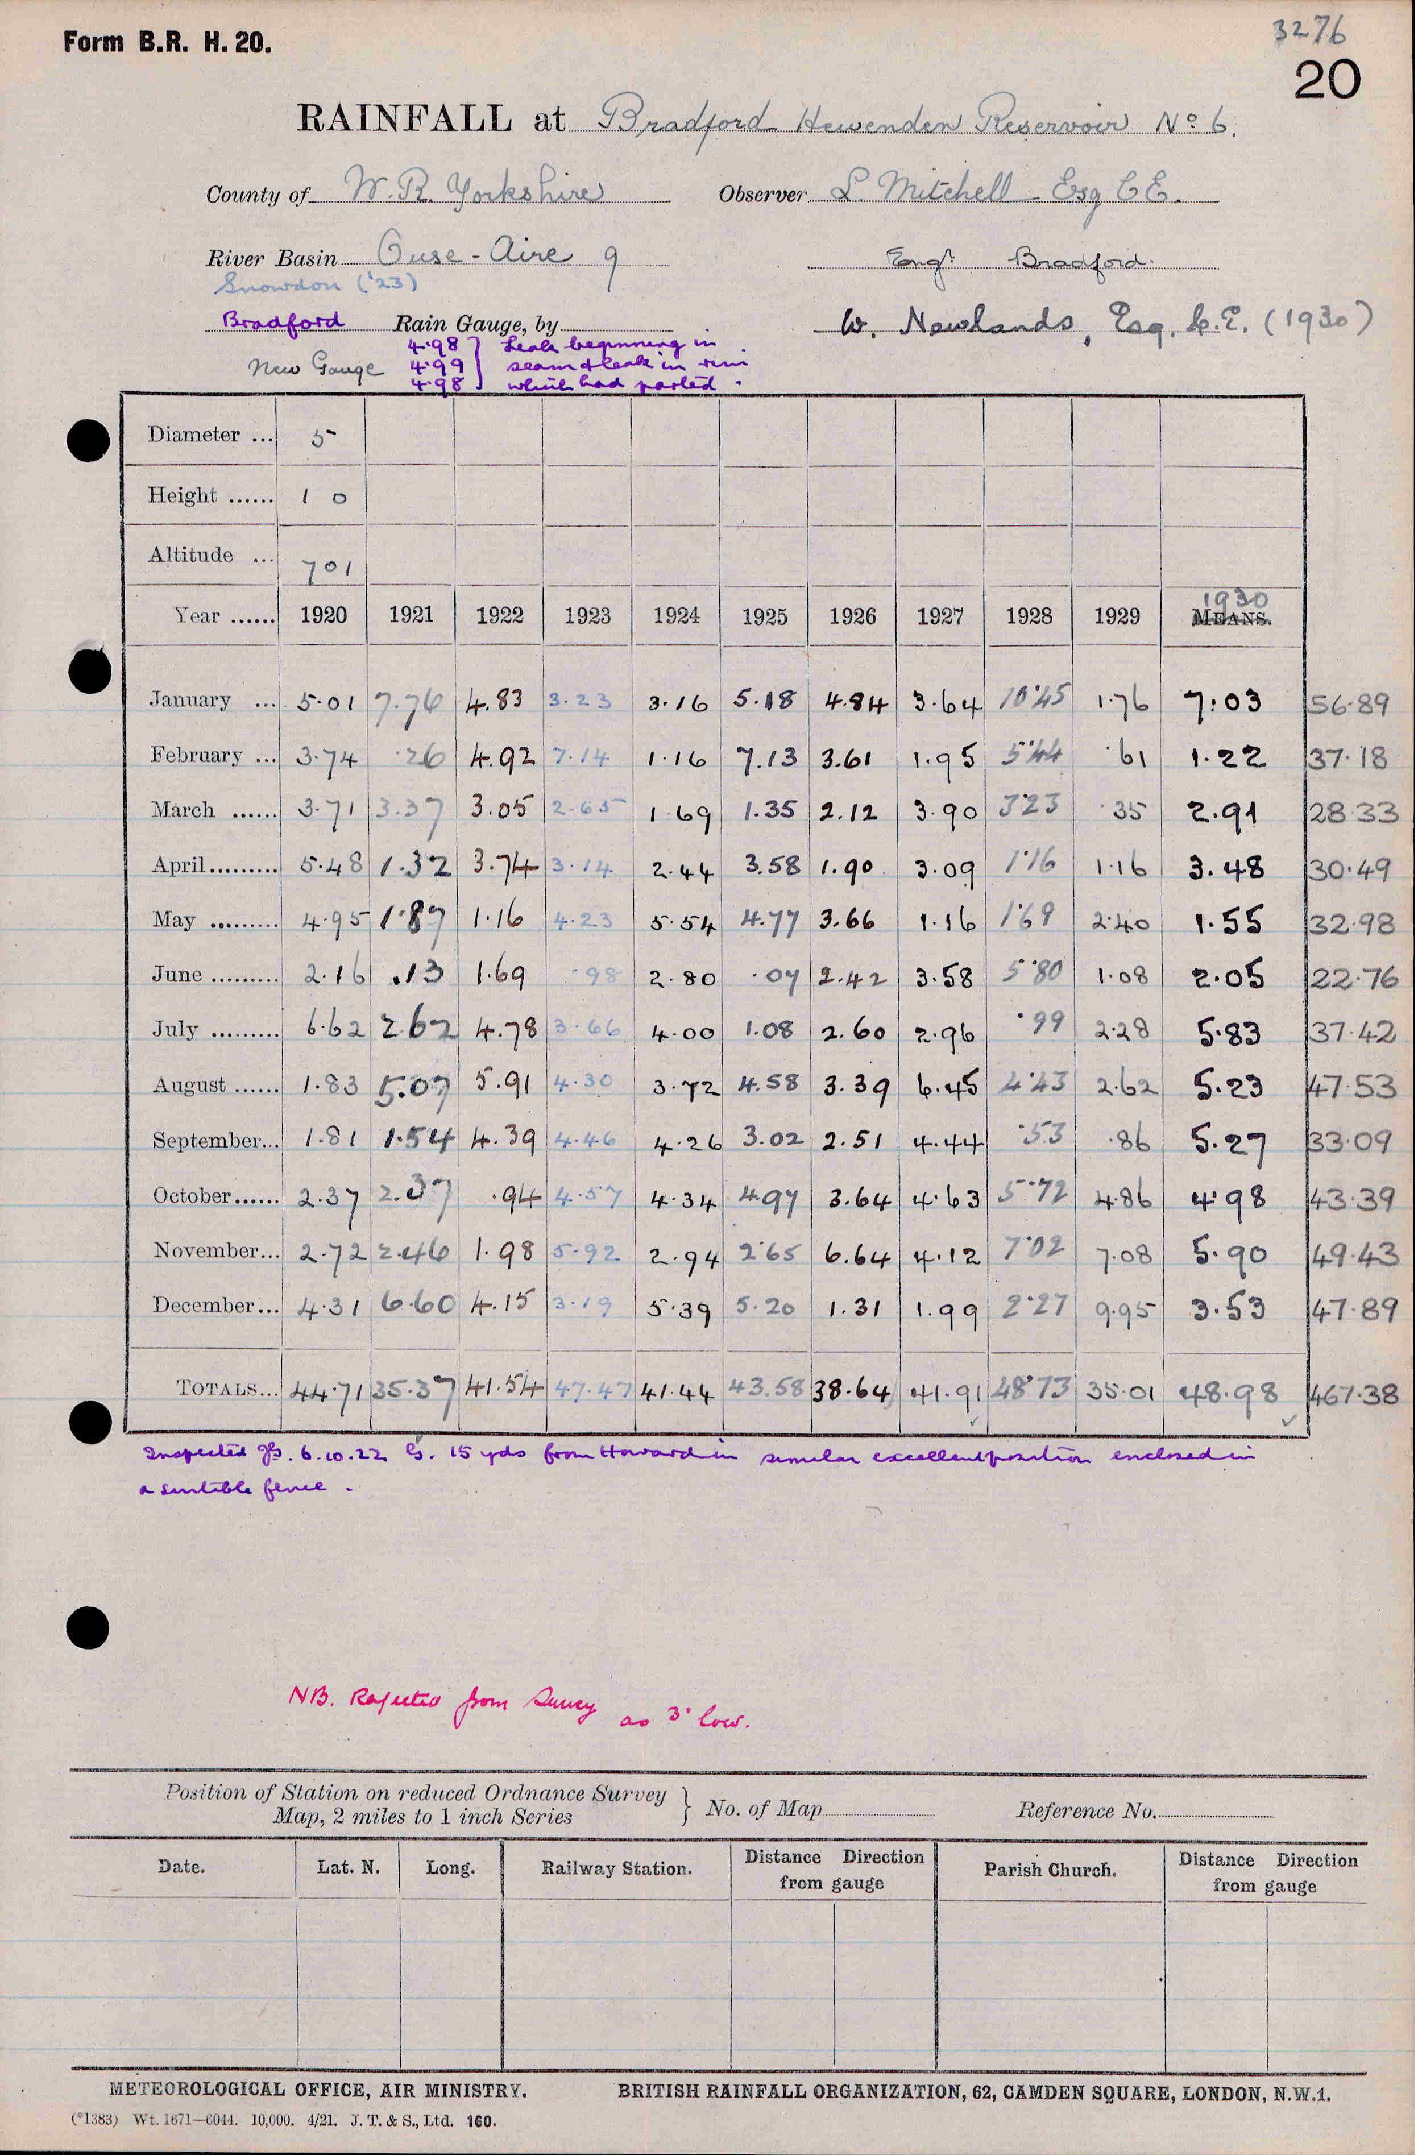 3276
Form B.R. H. 20.
20
RAINFALL at Bradford Hewenden Reservoir No 6.
County of W. R. Yorkshire Observer L. Mitchell Esq C E.
River Basin Ouse - Aire 9 Engr Bradford.
Snowdon ('23)
Bradford Rain Gauge, by W. Newlands, Esq. C.E. (1930)
4.98 } Leak beginning in
New Gauge 4.99 seam & leak in rim
4.98 which had parted.
Diameter ... 5
Height ...... 1 0
Altitude ... 701
Year ...... 1920 1921 1922 1923 1924 1925 1926 1927 1928 1929 1930 MEANS.
January ... 5.01 7.76 4.83 3.23 3.16 5.18 4.84 3.64 10.45 1.76 7.03 56.89
February ... 3.74 .26 4.92 7.14 1.16 7.13 3.61 1.95 5.44 .61 1.22 37.18
March ...... 3.71 3.37 3.05 2.65 1.69 1.35 2.12 3.90 3.23 .35 2.91 28.33
April ......... 5.48 1.32 3.74 3.14 2.44 3.58 1.90 3.09 1.16 1.16 3.48 30.49
May ......... 4.95 1.87 1.16 4.23 5.54 4.77 3.66 1.16 1.69 2.40 1.55 32.98
June ......... 2.16 .13 1.69 .98 2.80 .07 2.42 3.58 5.80 1.08 2.05 22.76
July ......... 6.62 2.62 4.78 3.66 4.00 1.08 2.60 2.96 .99 2.28 5.83 37.42
August ...... 1.83 5.07 5.91 4.30 3.72 4.58 3.39 6.45 4.43 2.62 5.23 47.53
September... 1.81 1.54 4.39 4.46 4.26 3.02 2.51 4.44 .53 .86 5.27 33.09
October ...... 2.37 2.37 .94 4.57 4.34 4.97 3.64 4.63 5.72 4.86 4.98 43.39
November... 2.72 2.46 1.98 5.92 2.94 2.65 6.64 4.12 7.02 7.08 5.90 49.43
December... 4.31 6.60 4.15 3.19 5.39 5.20 1.31 1.99 2.27 9.95 3.53 47.89
TOTALS... 44.71 35.37 41.54 47.47 41.44 43.58 38.64 41.91 48.73 35.01 48.98 467.38
Inspected 6.10.22 G. 15 yds from Howard in similar excellent position enclosed in
a suitable fence.
NB. Rejected from Survey as 3" low.
Position of Station on reduced Ordnance Survey } No. of Map Reference No.
Map, 2 miles to 1 inch Series
Date. Lat. N. Long. Railway Station. Distance Direction from gauge Parish Church. Distance Direction from gauge
METEOROLOGICAL OFFICE, AIR MINISTRY. BRITISH RAINFALL ORGANIZATION, 62, CAMDEN SQUARE, LONDON, N.W.1.
(*1383) Wt. 1671—6044. 10,000. 4/21. J. T. & S., Ltd. 160.